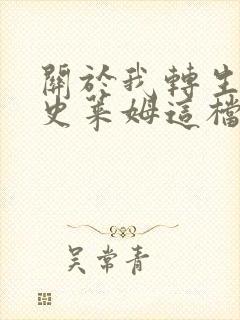 關於我轉生
史萊姆這檔
吳常青